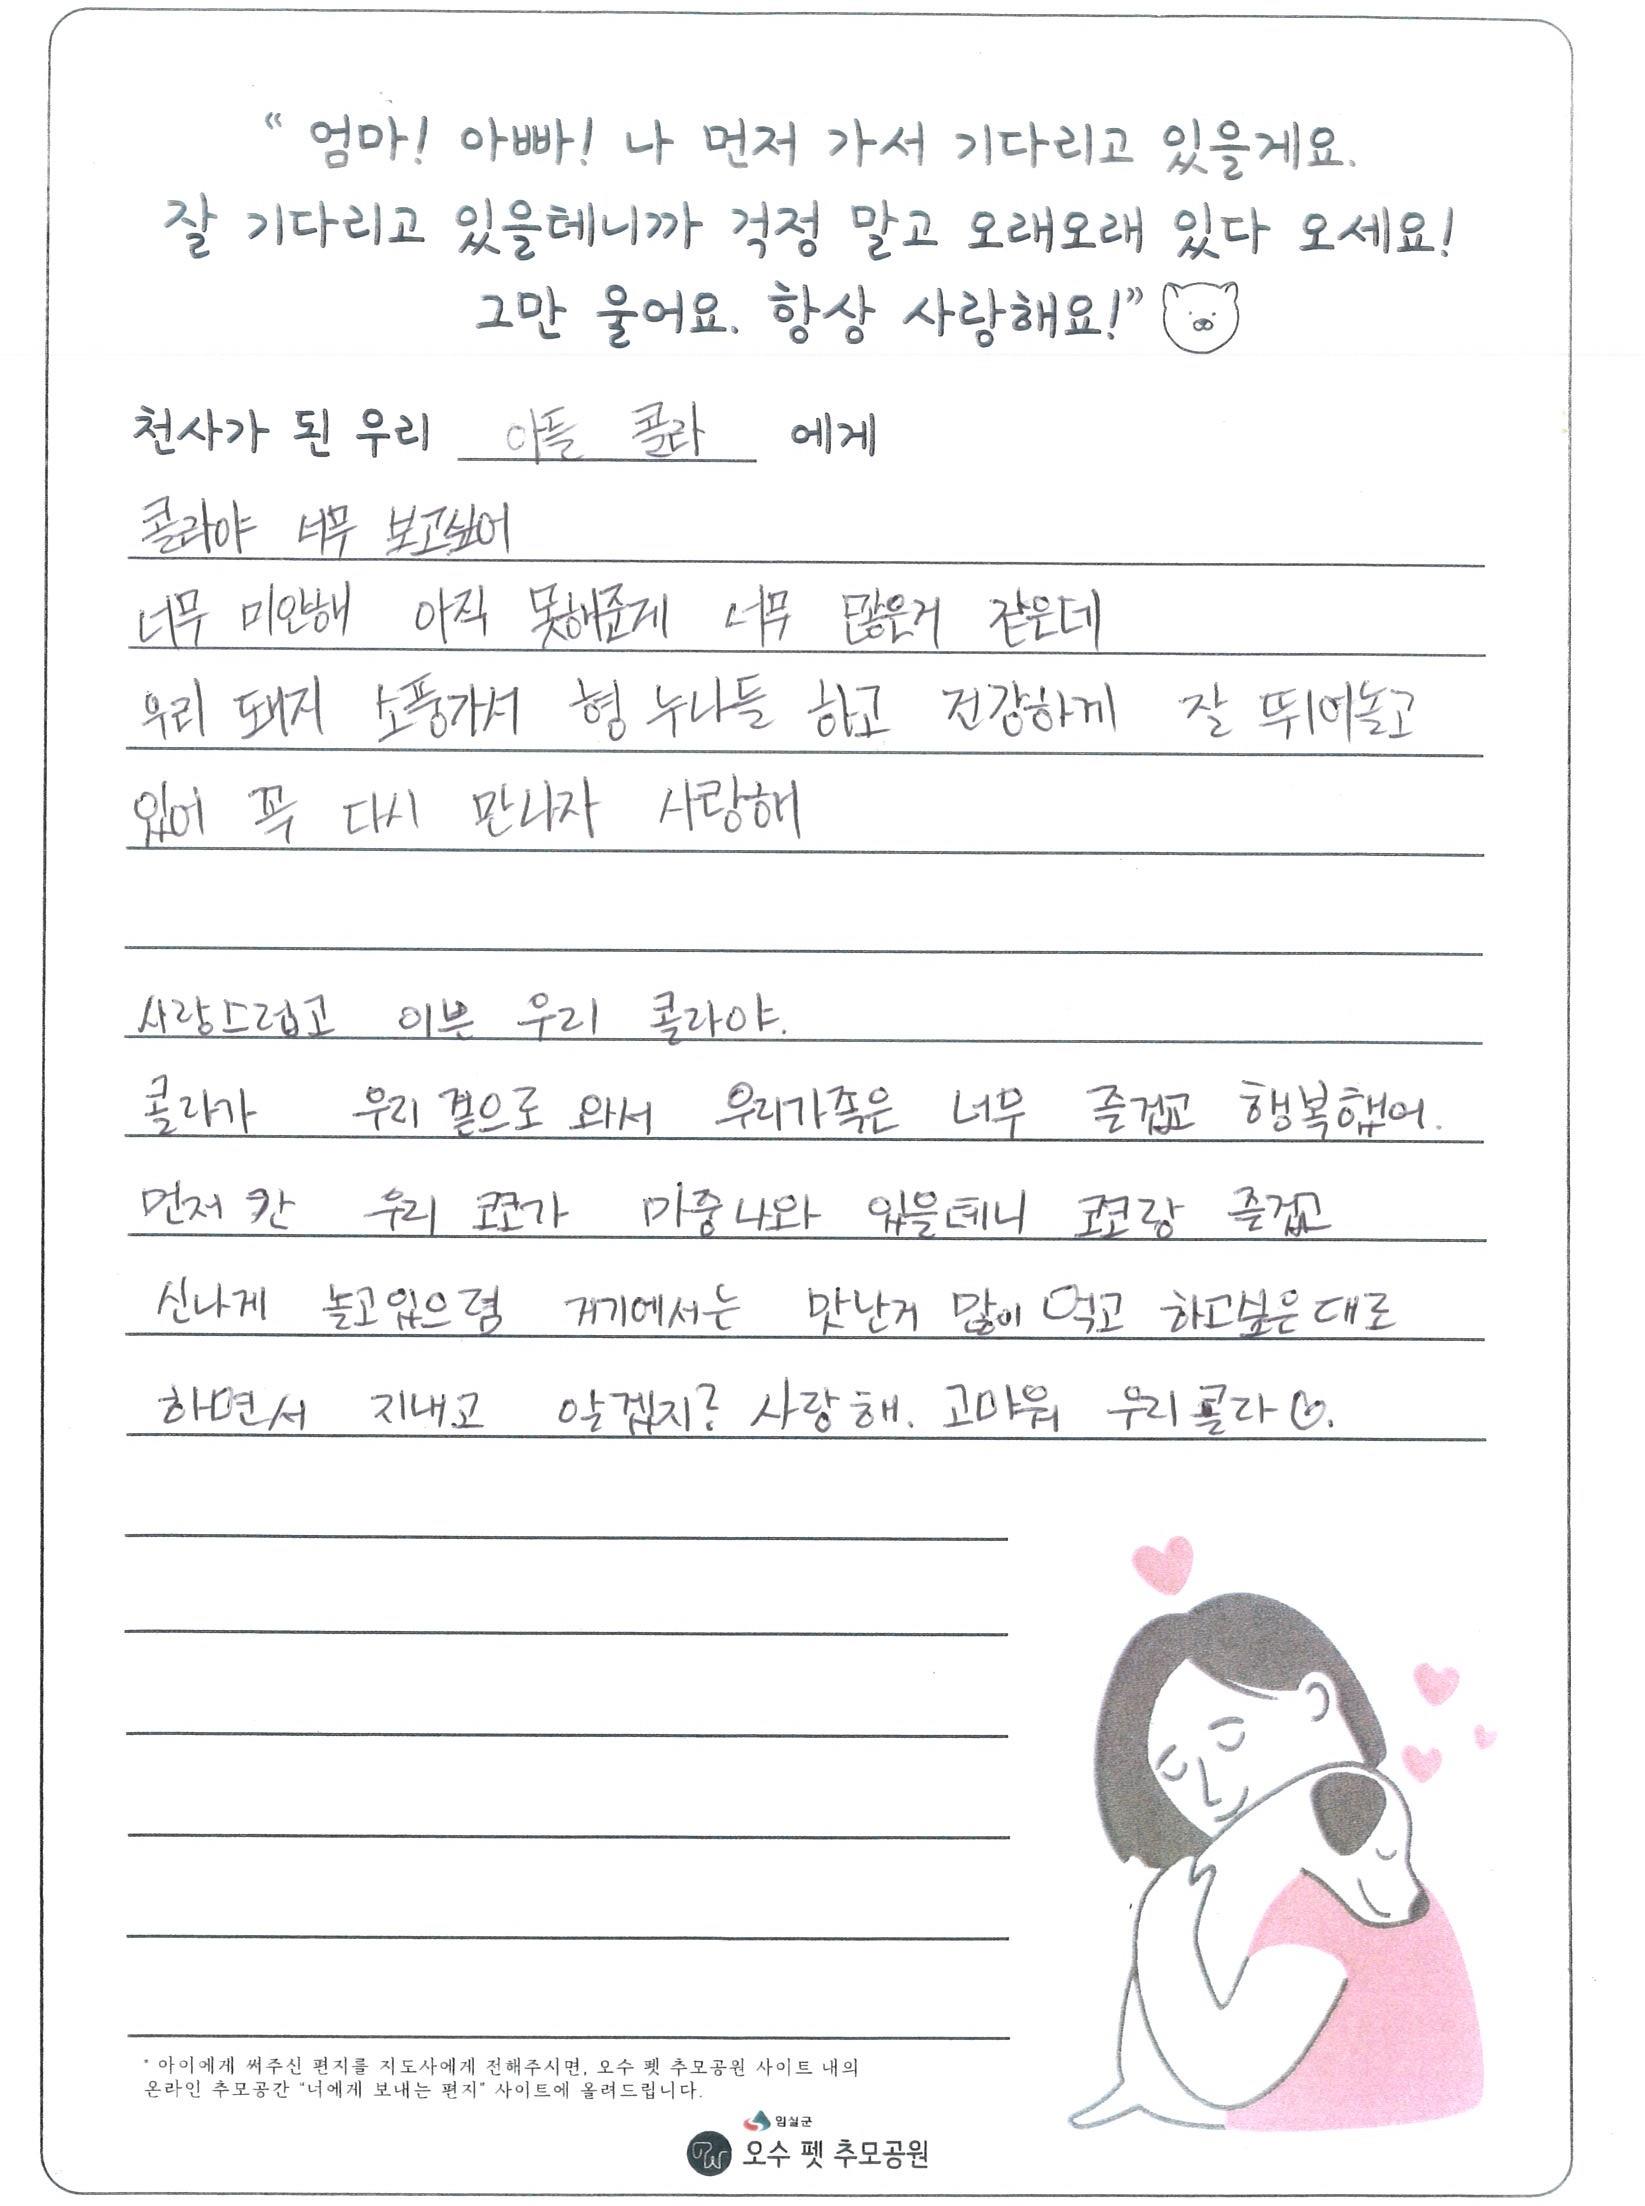 “ 엄마! 아빠! 나 먼저 가서 기다리고 있을게요.
잘 기다리고 있을테니까 걱정 말고 오래오래 있다 오세요!
그만 울어요. 항상 사랑해요!”
천사가 된 우리 아들 콜라 에게
콜라야 너무 보고싶어
너무 미안해 아직 못해준게 너무 많은거 같은데
우리 돼지 소풍가서 형 누나들 하고 건강하게 잘 뛰어놀고
있어 꼭 다시 만나자 사랑해
사랑스럽고 이쁜 우리 콜라야.
콜라가 우리 곁으로 와서 우리가족은 너무 즐겁고 행복했어.
먼저 간 우리 코코가 마중나와 있을테니 코코랑 즐겁고
신나게 놀고있으렴 거기에서는 맛난거 많이 먹고 하고싶은대로
하면서 지내고 알겠지? 사랑해. 고마워 우리콜라♡.
* 아이에게 써주신 편지를 지도사에게 전해주시면, 오수 펫 추모공원 사이트 내의
온라인 추모공간 “너에게 보내는 편지” 사이트에 올려드립니다.
임실군
오수 펫 추모공원